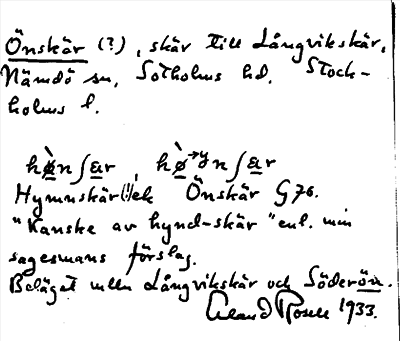 Önskär (?), skär till Långvikskär,
Nämdö sn, Sotholms hd. Stock-
holms l.
hø̀nʃær, hø̀→y nʃær
Hymnskär (!) ek Önskär G76.
"Kanske av hynd-skär" enl. min
sagesmans förslag.
Beläget mellan Långvikskär och Söderön.
Erland Rosell 1933.